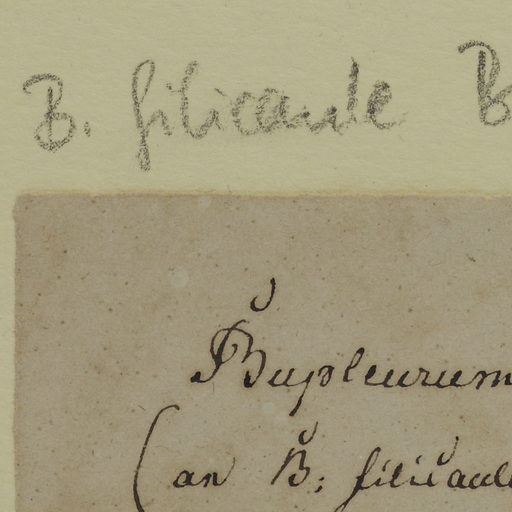 B. filicaule B
Bupleurum
(an B: filicaul